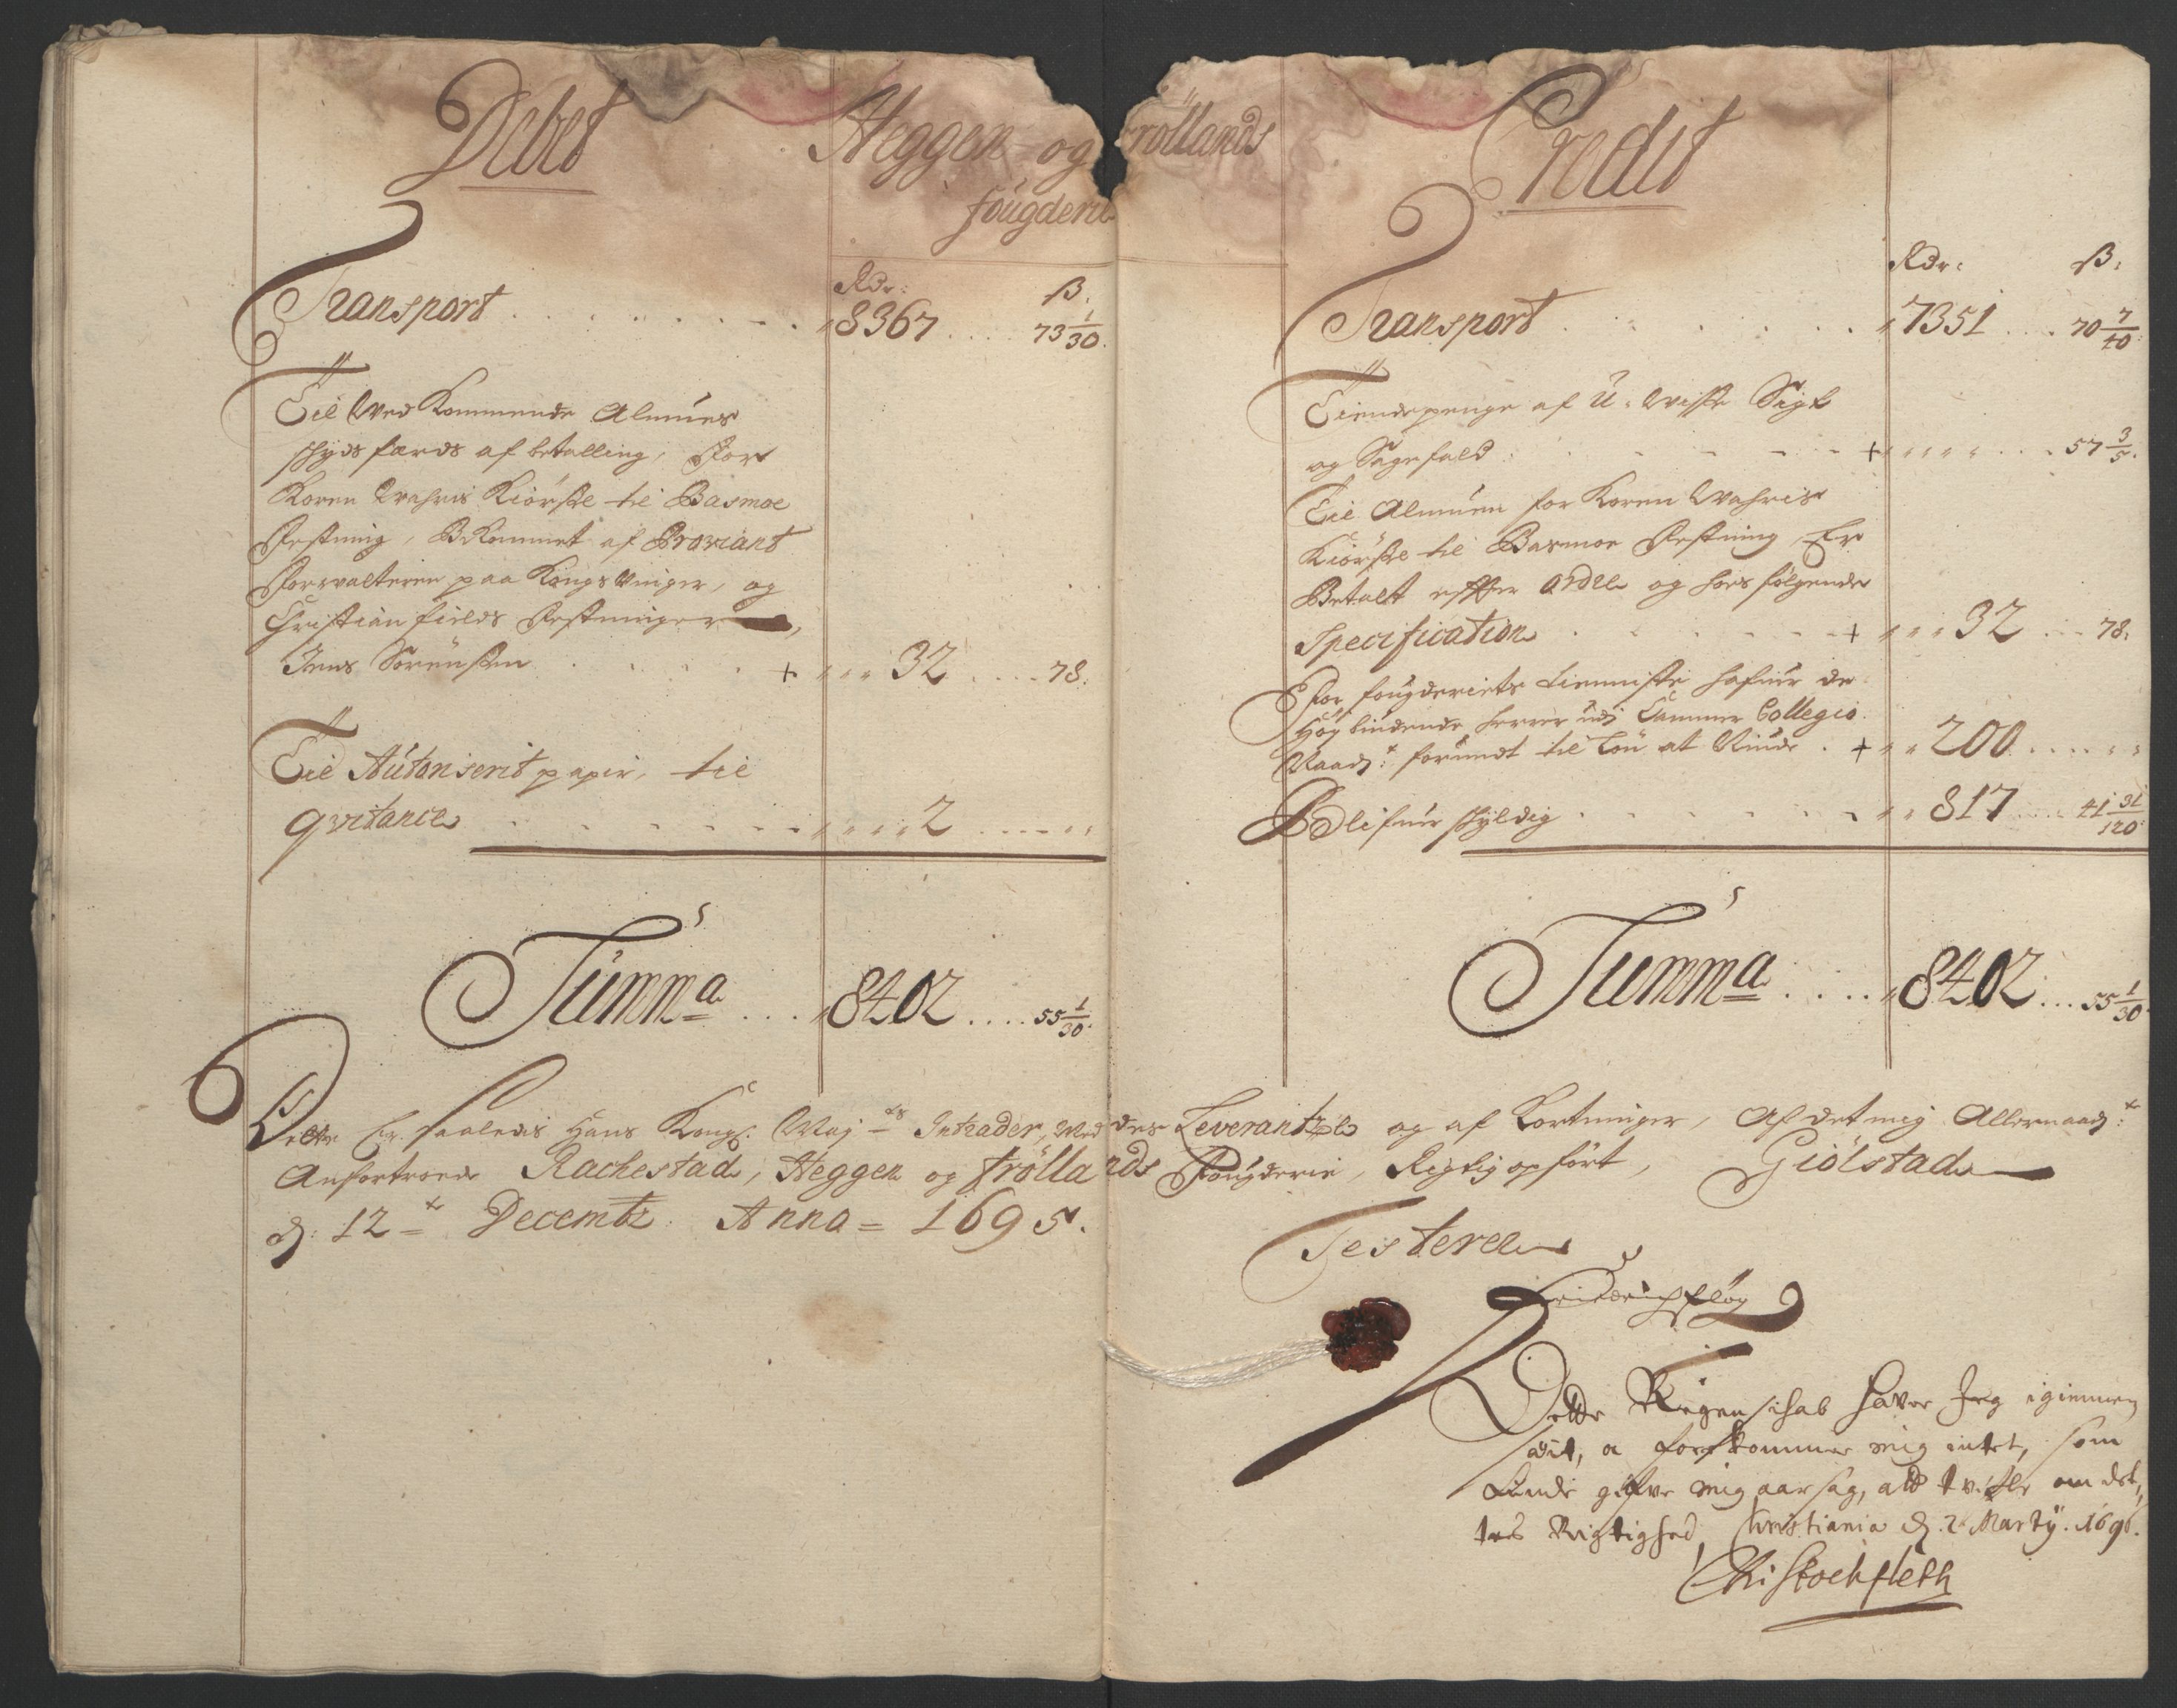 Debet
Heggen og Fröllands
fougderie
Credit
Rdr: ß.
Transport . . . . . . . . 8367 . . . . 73 1/30.
Til Ved Kommende Almues
skyds færds af betalling, For
Koren Wahris Kiörsße til Basmoe
Festning, Bekommet af Proviant
Forvalteren paa Kongs Vinger, og
Christian fields Festninger,
Jens Sörensßen . . . . + 32 . . . . 78.
Til Autoriserit papir, til
qvitance . . . . . . . 2 . . . .
Summa . . . . 8402 . . . . 55 1/30.
Rdr: ß:
Transport . . . . . . . 7351 . . . 70 7/40.
Tiendepenge af U-Visse Sigt
og Sagefald . . . . . . + . . . . 57 3/5.
Til Almuen for Koren Wahris
Kiörsße til Basmoe Festning, Er
Betalt effter ordre og hos følgende
Specification . . . . . . + 32 . . . 78.
For fougderiets tienniste hafuer de
Höybiudende herrer udj Cammer Collegio
Naadj: forundt til Lön at Niude . + 200 . . . .
Blifuer skyldig . . . . . . 817 . . . 41 31/120.
Summa . . . . 8402 . . . 55 1/30.
Dette Er saaledis Hans Kongl: Maj ts Intrader, Med des Leverantze og af Kortninger, Af det mig Allernaadj:
Anfortroede Rachestad, Heggen og fröllands Fougderie, Rigtig opfört, Giölstad
dj: 12 = Decembr: Anno = 1695.
Testerer
Friderich fløg
Dette Regenschab haver Jeg igiennem
seet, og forekommer mig intet, som
kunde gifve mig aarsag, att tvifle om det,,
tes Rigtighed, Christiania dj. 2 Martij. 1696.
Chr: Stockfleth